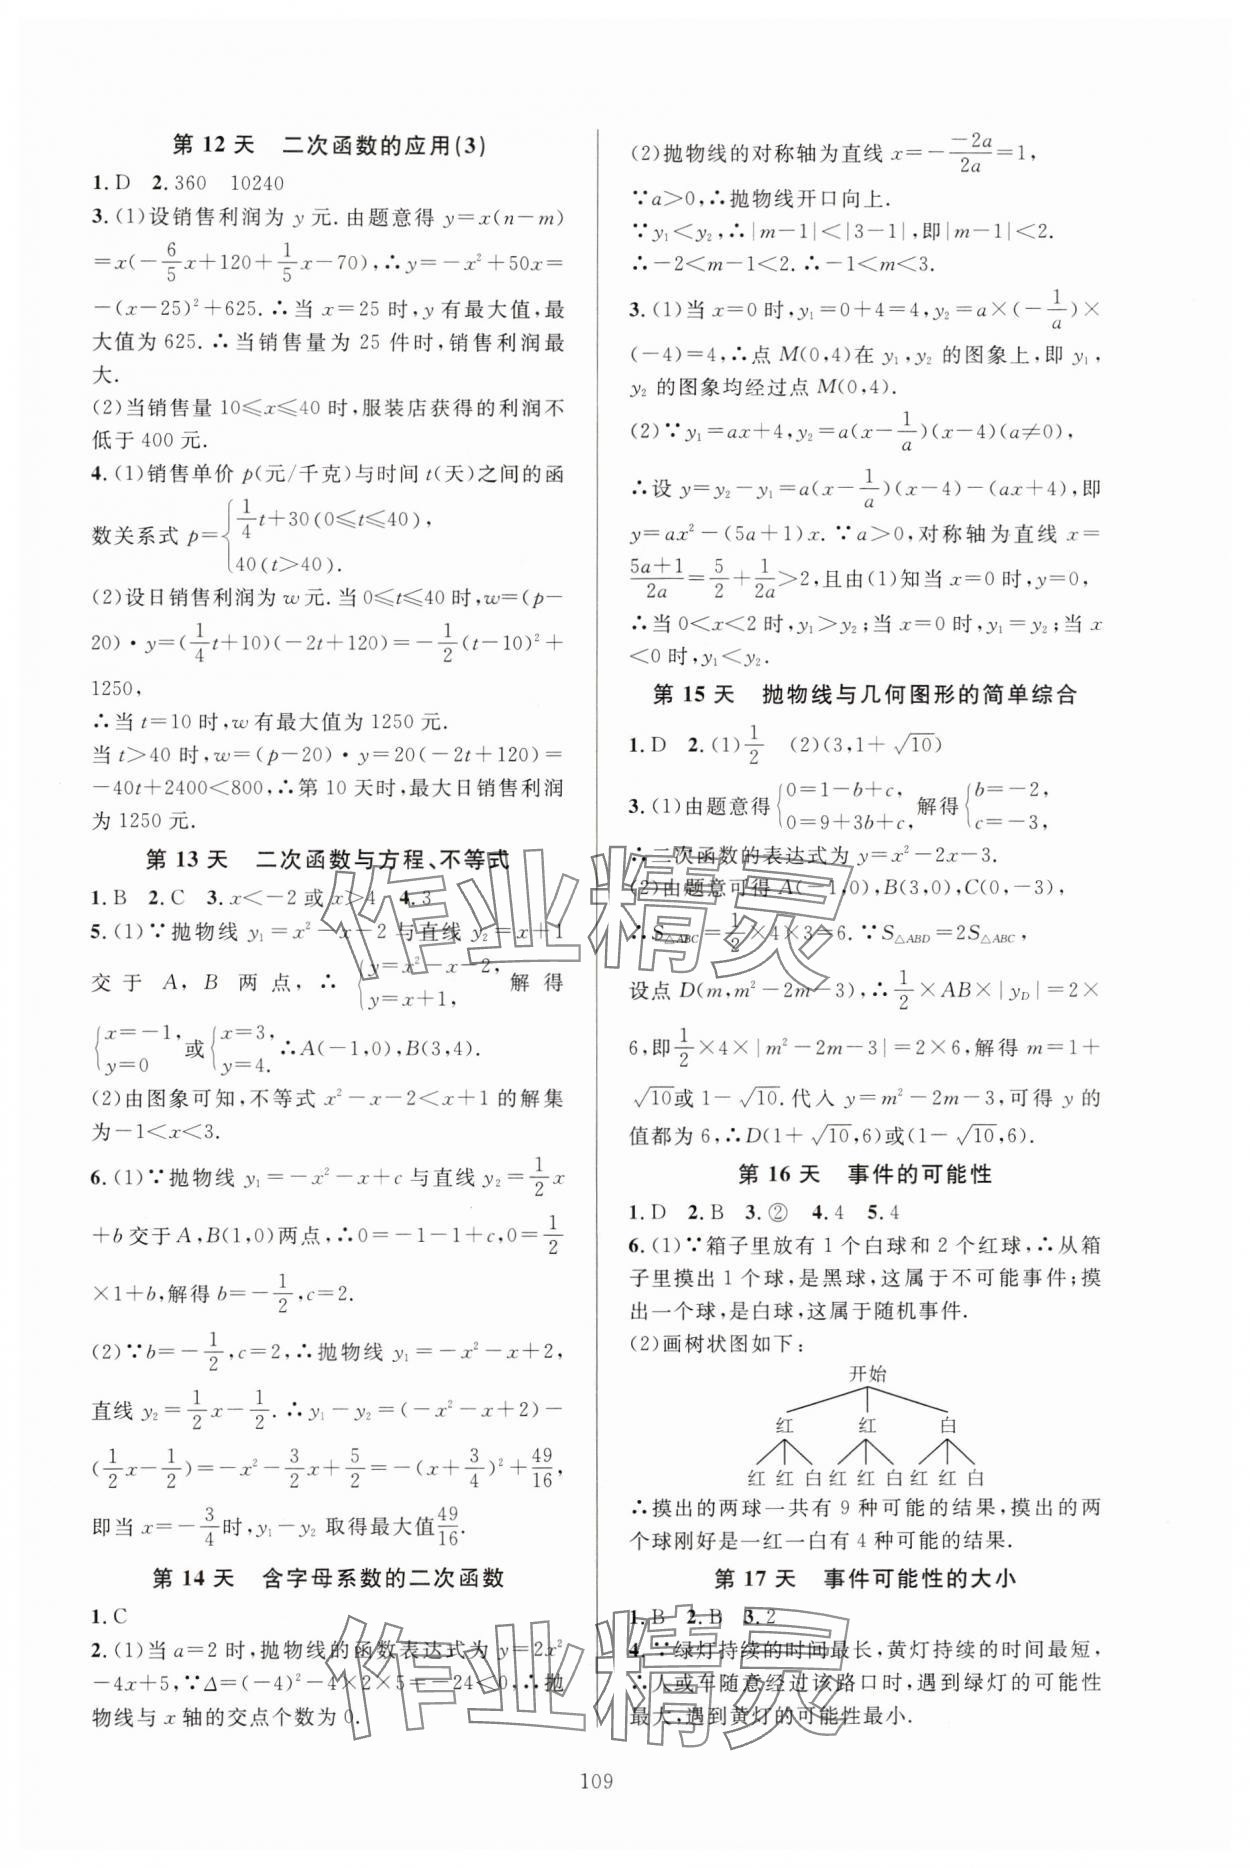 第 12 天　二次函数的应用(3)
1. D　2. 360　10240
3. (1)设销售利润为 y 元. 由题意得 y=x(n-m)
=x(-6/5x+120+1/5x-70),∴y=-x²+50x=
-(x-25)²+625. ∴当 x=25 时,y 有最大值,最
大值为 625. ∴当销售量为 25 件时,销售利润最
大.
(2)当销售量 10≤x≤40 时,服装店获得的利润不
低于 400 元.
4. (1)销售单价 p(元/千克)与时间 t(天)之间的函
数关系式 p={1/4t+30(0≤t≤40),
40(t>40).
(2)设日销售利润为 w 元. 当 0≤t≤40 时,w=(p-
20)·y=(1/4t+10)(-2t+120)=-1/2(t-10)²+
1250,
∴当 t=10 时,w 有最大值为 1250 元.
当 t>40 时,w=(p-20)·y=20(-2t+120)=
-40t+2400<800,∴第 10 天时,最大日销售利润
为 1250 元.
第 13 天　二次函数与方程、不等式
1. B　2. C　3. x<-2 或 x>4　4. 3
5. (1)∵抛物线 y₁=x²-x-2 与直线 y₂=x+1
交于 A, B 两点,∴{y=x²-x-2, y=x+1, 解得
{x=-1, y=0 或{x=3, y=4. ∴A(-1,0),B(3,4).
(2)由图象可知,不等式 x²-x-2<x+1 的解集
为-1<x<3.
6. (1)∵抛物线 y₁=-x²-x+c 与直线 y₂=1/2x
+b 交于 A,B(1,0)两点,∴0=-1-1+c,0=1/2
×1+b,解得 b=-1/2,c=2.
(2)∵b=-1/2,c=2,∴抛物线 y₁=-x²-x+2,
直线 y₂=1/2x-1/2. ∴y₁-y₂=(-x²-x+2)-
(1/2x-1/2)=-x²-3/2x+5/2=-(x+3/4)²+49/16,
即当 x=-3/4时,y₁-y₂ 取得最大值49/16.
第 14 天　含字母系数的二次函数
1. C
2. (1)当 a=2 时,抛物线的函数表达式为 y=2x²
-4x+5,∵Δ=(-4)²-4×2×5=-24<0,∴抛
物线与 x 轴的交点个数为 0.
(2)抛物线的对称轴为直线 x=--2a/2a=1,
∵a>0,∴抛物线开口向上.
∵y₁<y₂,∴|m-1|<|3-1|,即|m-1|<2.
∴-2<m-1<2. ∴-1<m<3.
3. (1)当 x=0 时,y₁=0+4=4,y₂=a×(-1/a)×
(-4)=4,∴点 M(0,4)在 y₁,y₂ 的图象上,即 y₁,
y₂ 的图象均经过点 M(0,4).
(2)∵y₁=ax+4,y₂=a(x-1/a)(x-4)(a≠0),
∴设 y=y₂-y₁=a(x-1/a)(x-4)-(ax+4),即
y=ax²-(5a+1)x. ∵a>0,对称轴为直线 x=
5a+1/2a=5/2+1/2a>2,且由(1)知当 x=0 时,y=0,
∴当 0<x<2 时,y₁>y₂;当 x=0 时,y₁=y₂;当 x
<0 时,y₁<y₂.
第 15 天　抛物线与几何图形的简单综合
1. D　2. (1)1/2　(2)(3,1+√10)
3. (1)由题意得{0=1-b+c, 0=9+3b+c, 解得{b=-2, c=-3,
∴二次函数的表达式为 y=x²-2x-3.
(2)由题意可得 A(-1,0),B(3,0),C(0,-3),
∴S△ABC=1/2×4×3=6. ∵S△ABD=2S△ABC,
设点 D(m,m²-2m-3),∴1/2×AB×|yD|=2×
6,即1/2×4×|m²-2m-3|=2×6,解得 m=1+
√10或 1-√10. 代入 y=m²-2m-3,可得 y 的
值都为 6,∴D(1+√10,6)或(1-√10,6).
第 16 天　事件的可能性
1. D　2. B　3. ②　4. 4　5. 4
6. (1)∵箱子里放有 1 个白球和 2 个红球,∴从箱
子里摸出 1 个球,是黑球,这属于不可能事件;摸
出一个球,是白球,这属于随机事件.
(2)画树状图如下:
开始
红　红　白
红 红 白 红 红 白 红 红 白
∴摸出的两球一共有 9 种可能的结果,摸出的两
个球刚好是一红一白有 4 种可能的结果.
第 17 天　事件可能性的大小
1. B　2. B　3. 2
4. ∵绿灯持续的时间最长,黄灯持续的时间最短,
∴人或车随意经过该路口时,遇到绿灯的可能性
最大,遇到黄灯的可能性最小.
作业精灵
作业精灵
109